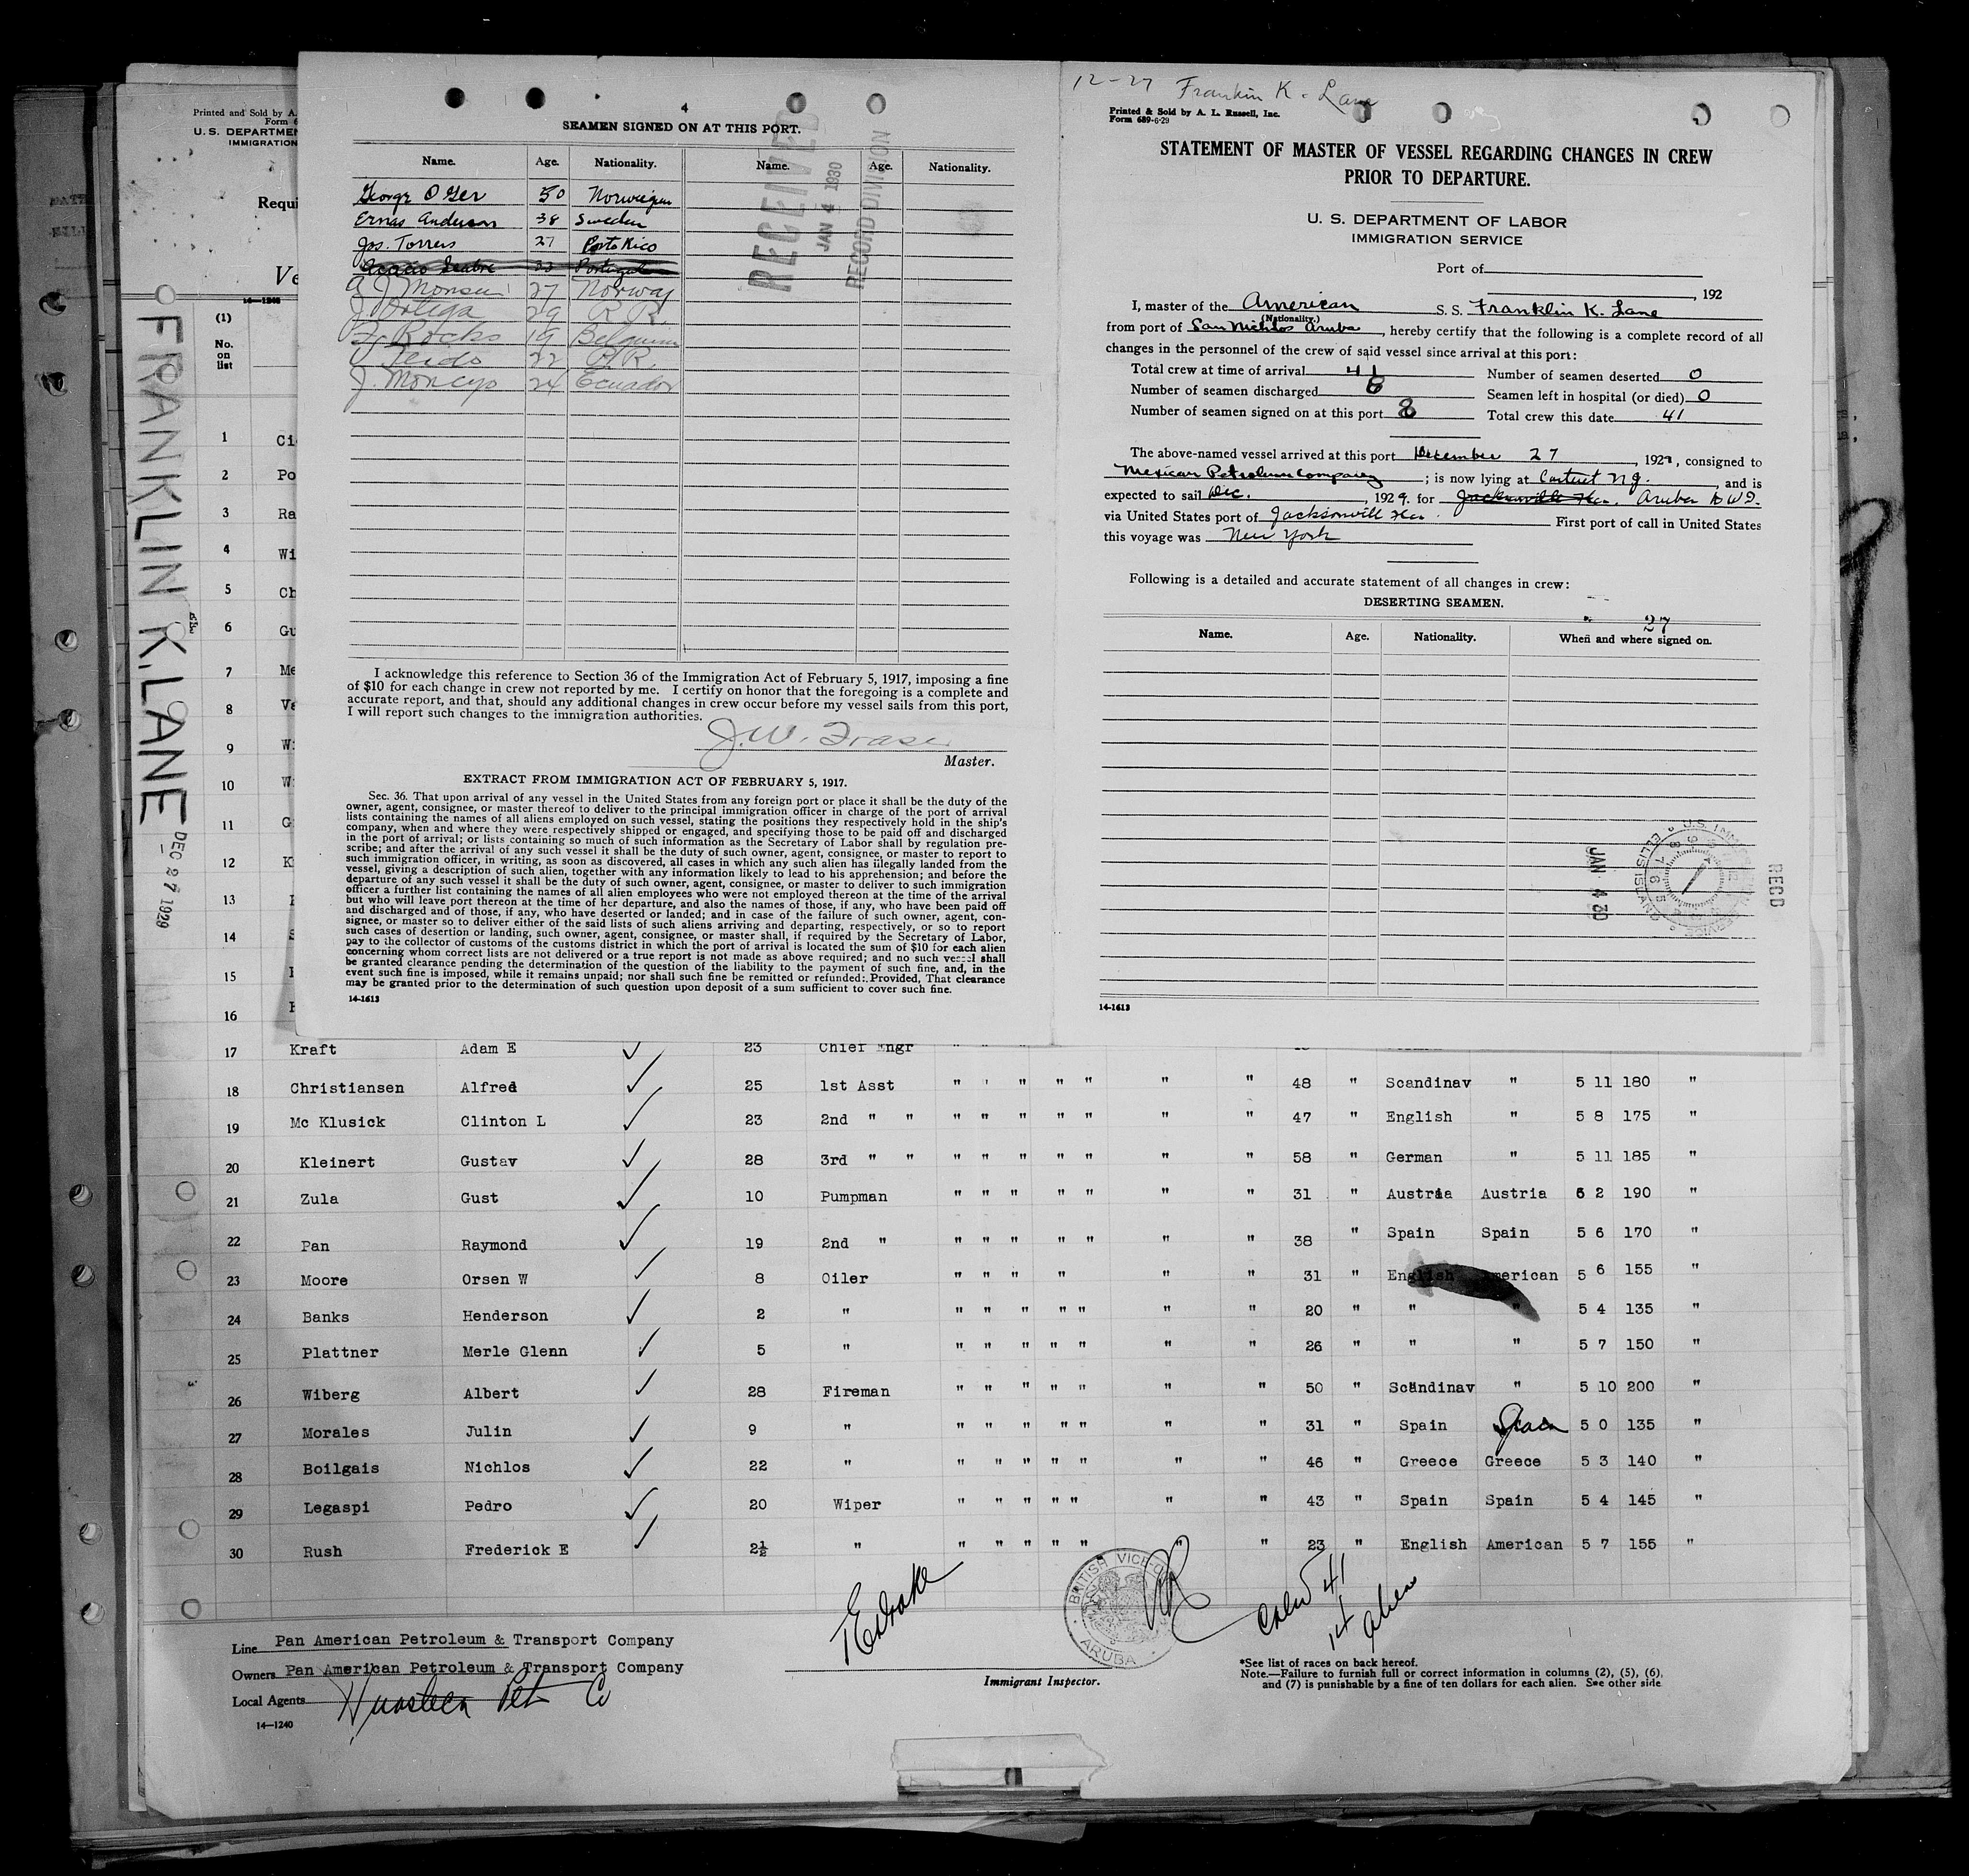 Printed and Sold by A.
Form 6
U. S. DEPARTMEN
IMMIGRATION
Requi
Ve
14—1240
(1)
No.
on
list
FRANKLIN K. LANE
DEC 27 1929
1 Ci
2 Po
3 Ra
4 Wi
5 Ch
6 Gu
7 Me
8 Va
9 W
10 W
11 G
12 K
13
14
15
16
4
SEAMEN SIGNED ON AT THIS PORT.
Name. Age. Nationality. Name. Age. Nationality.
George 50 Norwegian
Ernas Anderson 38 Sweden
Jos. Torres 27 Porto Rico
33 Portugal
A J Monsen 27 Norway
J. Ortega 29 P. R.
Rocks 19 Belgium
22 P. R.
J. Moncayo 24 Ecuador
RECEIVED
JAN 4 1930
RECORD DIVISION
I acknowledge this reference to Section 36 of the Immigration Act of February 5, 1917, imposing a fine
of $10 for each change in crew not reported by me. I certify on honor that the foregoing is a complete and
accurate report, and that, should any additional changes in crew occur before my vessel sails from this port,
I will report such changes to the immigration authorities.
J. W. Fraser
Master.
EXTRACT FROM IMMIGRATION ACT OF FEBRUARY 5, 1917.
Sec. 36. That upon arrival of any vessel in the United States from any foreign port or place it shall be the duty of the
owner, agent, consignee, or master thereof to deliver to the principal immigration officer in charge of the port of arrival
lists containing the names of all aliens employed on such vessel, stating the positions they respectively hold in the ship's
company, when and where they were respectively shipped or engaged, and specifying those to be paid off and discharged
in the port of arrival; or lists containing so much of such information as the Secretary of Labor shall by regulation pre-
scribe; and after the arrival of any such vessel it shall be the duty of such owner, agent, consignee, or master to report to
such immigration officer, in writing, as soon as discovered, all cases in which any such alien has illegally landed from the
vessel, giving a description of such alien, together with any information likely to lead to his apprehension; and before the
departure of any such vessel it shall be the duty of such owner, agent, consignee, or master to deliver to such immigration
officer a further list containing the names of all alien employees who were not employed thereon at the time of the arrival
but who will leave port thereon at the time of her departure, and also the names of those, if any, who have been paid off
and discharged and of those, if any, who have deserted or landed; and in case of the failure of such owner, agent, con-
signee, or master so to deliver either of the said lists of such aliens arriving and departing, respectively, or so to report
such cases of desertion or landing, such owner, agent, consignee, or master shall, if required by the Secretary of Labor,
pay to the collector of customs of the customs district in which the port of arrival is located the sum of $10 for each alien
concerning whom correct lists are not delivered or a true report is not made as above required; and no such vessel shall
be granted clearance pending the determination of the question of the liability to the payment of such fine, and, in the
event such fine is imposed, while it remains unpaid; nor shall such fine be remitted or refunded: Provided, That clearance
may be granted prior to the determination of such question upon deposit of a sum sufficient to cover such fine.
14-1613
12-27 Franklin K. Lane
Printed & Sold by A. L. Russell, Inc.
Form 689-6-29
STATEMENT OF MASTER OF VESSEL REGARDING CHANGES IN CREW
PRIOR TO DEPARTURE.
U. S. DEPARTMENT OF LABOR
IMMIGRATION SERVICE
Port of
, 192
I, master of the American S. S. Franklin K. Lane
(Nationality.)
from port of San Nichlos Aruba, hereby certify that the following is a complete record of all
changes in the personnel of the crew of said vessel since arrival at this port:
Total crew at time of arrival 41 Number of seamen deserted 0
Number of seamen discharged 8 Seamen left in hospital (or died) 0
Number of seamen signed on at this port 8 Total crew this date 41
The above-named vessel arrived at this port December 27, 192, consigned to
Mexican Petroleum Company; is now lying at Carteret N J., and is
expected to sail Dec., 1929. for Jacksonville Fla. Aruba D W I.
via United States port of Jacksonvill Fla. First port of call in United States
this voyage was New York
Following is a detailed and accurate statement of all changes in crew:
DESERTING SEAMEN.
27
Name. Age. Nationality. When and where signed on.
REC'D
JAN 4 30
U.S. IMMIGRATION SERVICE
ELLIS ISLAND
14-1613
17 Kraft Adam E 23 Chief Engr " " "
18 Christiansen Alfred 25 1st Asst " " " " " " " 48 " Scandinav " 5 11 180 "
19 Mc Klusick Clinton L 23 2nd " " " " " " " " " 47 " English " 5 8 175 "
20 Kleinert Gustav 28 3rd " " " " " " " " " 58 " German " 5 11 185 "
21 Zula Gust 10 Pumpman " " " " " " " 31 " Austria Austria 6 2 190 "
22 Pan Raymond 19 2nd " " " " " " " " 38 " Spain Spain 5 6 170 "
23 Moore Orsen W 8 Oiler " " " " " " 31 " English American 5 6 155 "
24 Banks Henderson 2 " " " " " " " " 20 " " " 5 4 135 "
25 Plattner Merle Glenn 5 " " " " " " " " 26 " " " 5 7 150 "
26 Wiberg Albert 28 Fireman " " " " " " " 50 " Scandinav " 5 10 200 "
27 Morales Julin 9 " " " " " " " " 31 " Spain Spain 5 0 135 "
28 Boilgais Nichlos 22 " " " " " " " " 46 " Greece Greece 5 3 140 "
29 Legaspi Pedro 20 Wiper " " " " " " " 43 " Spain Spain 5 4 145 "
30 Rush Frederick E 2½ " " " " " " " " 23 " English American 5 7 155 "
BRITISH VICE-
ARUBA
Crew 41
14 Alien
Line Pan American Petroleum & Transport Company
Owners Pan American Petroleum & Transport Company
Local Agents Huasteca Pet Co
14—1240
Immigrant Inspector.
*See list of races on back hereof.
Note.—Failure to furnish full or correct information in columns (2), (5), (6),
and (7) is punishable by a fine of ten dollars for each alien. See other side